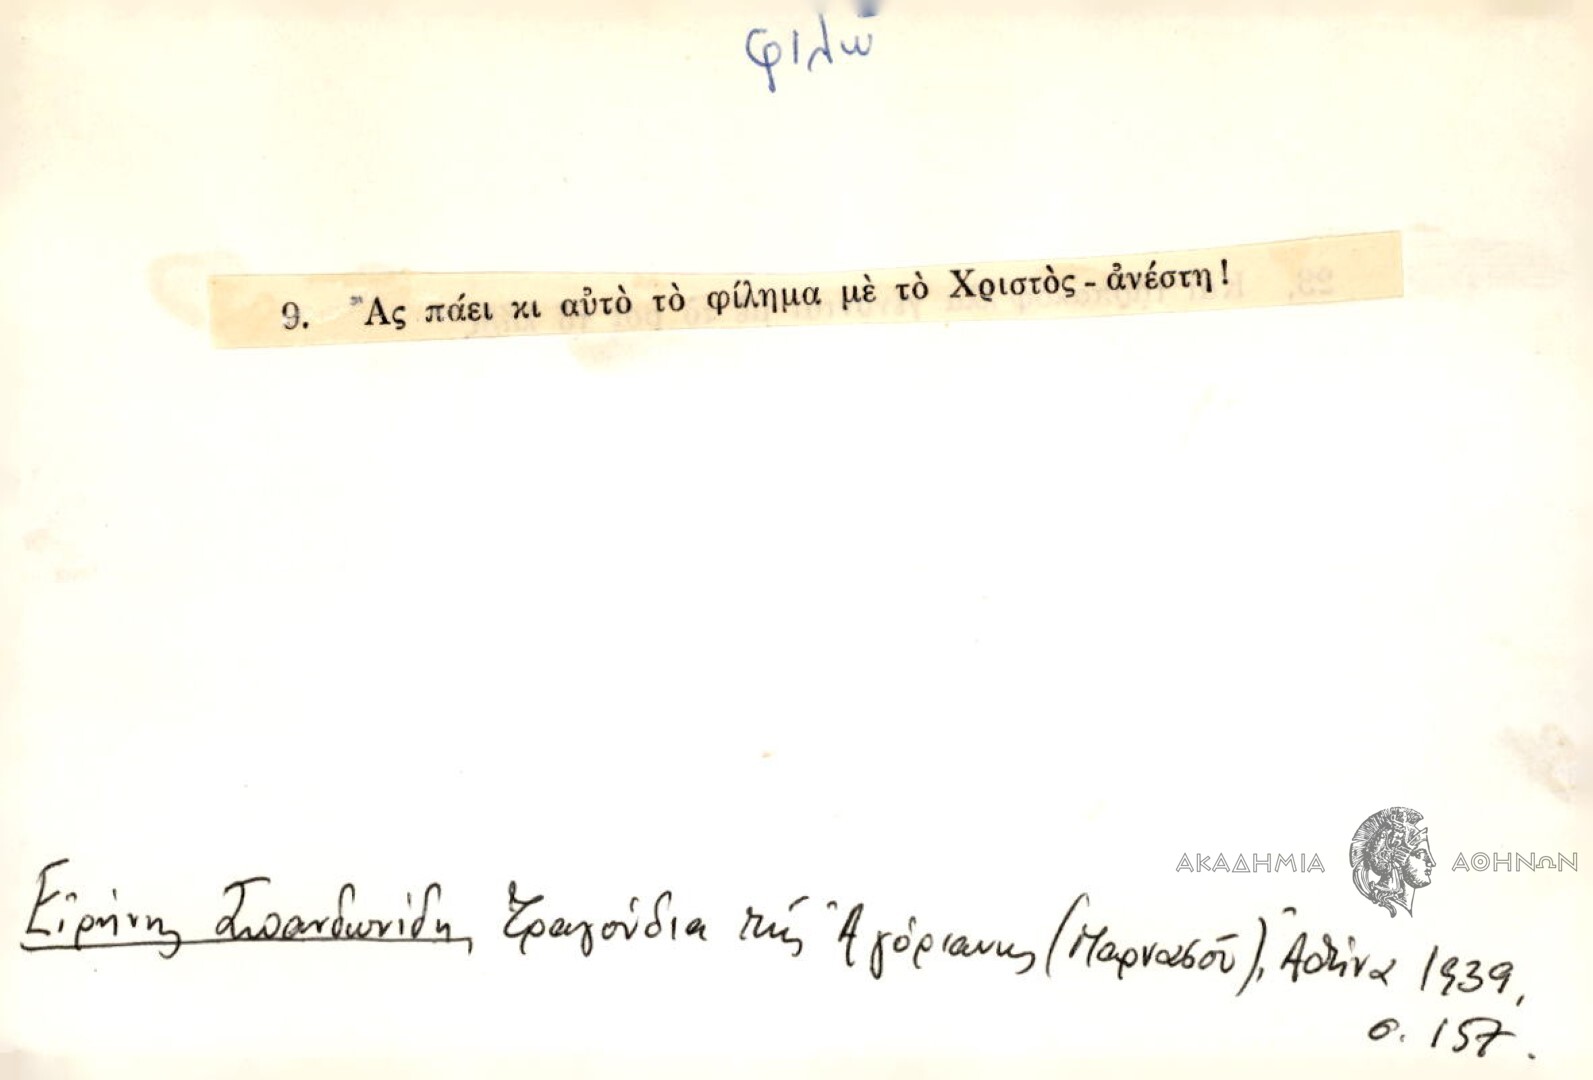 φιλῶ
9. Ἂς πάει κι αὐτὸ τὸ φίλημα μὲ τὸ Χριστὸς - ἀνέστη!
ΑΚΑΔΗΜΙΑ ΑΘΗΝΩΝ
Εἰρήνης Σπανδωνίδη, Τραγούδια τῆς Ἀγόριανης (Παρνασοῦ), Ἀθήνα 1939,
σ. 157.